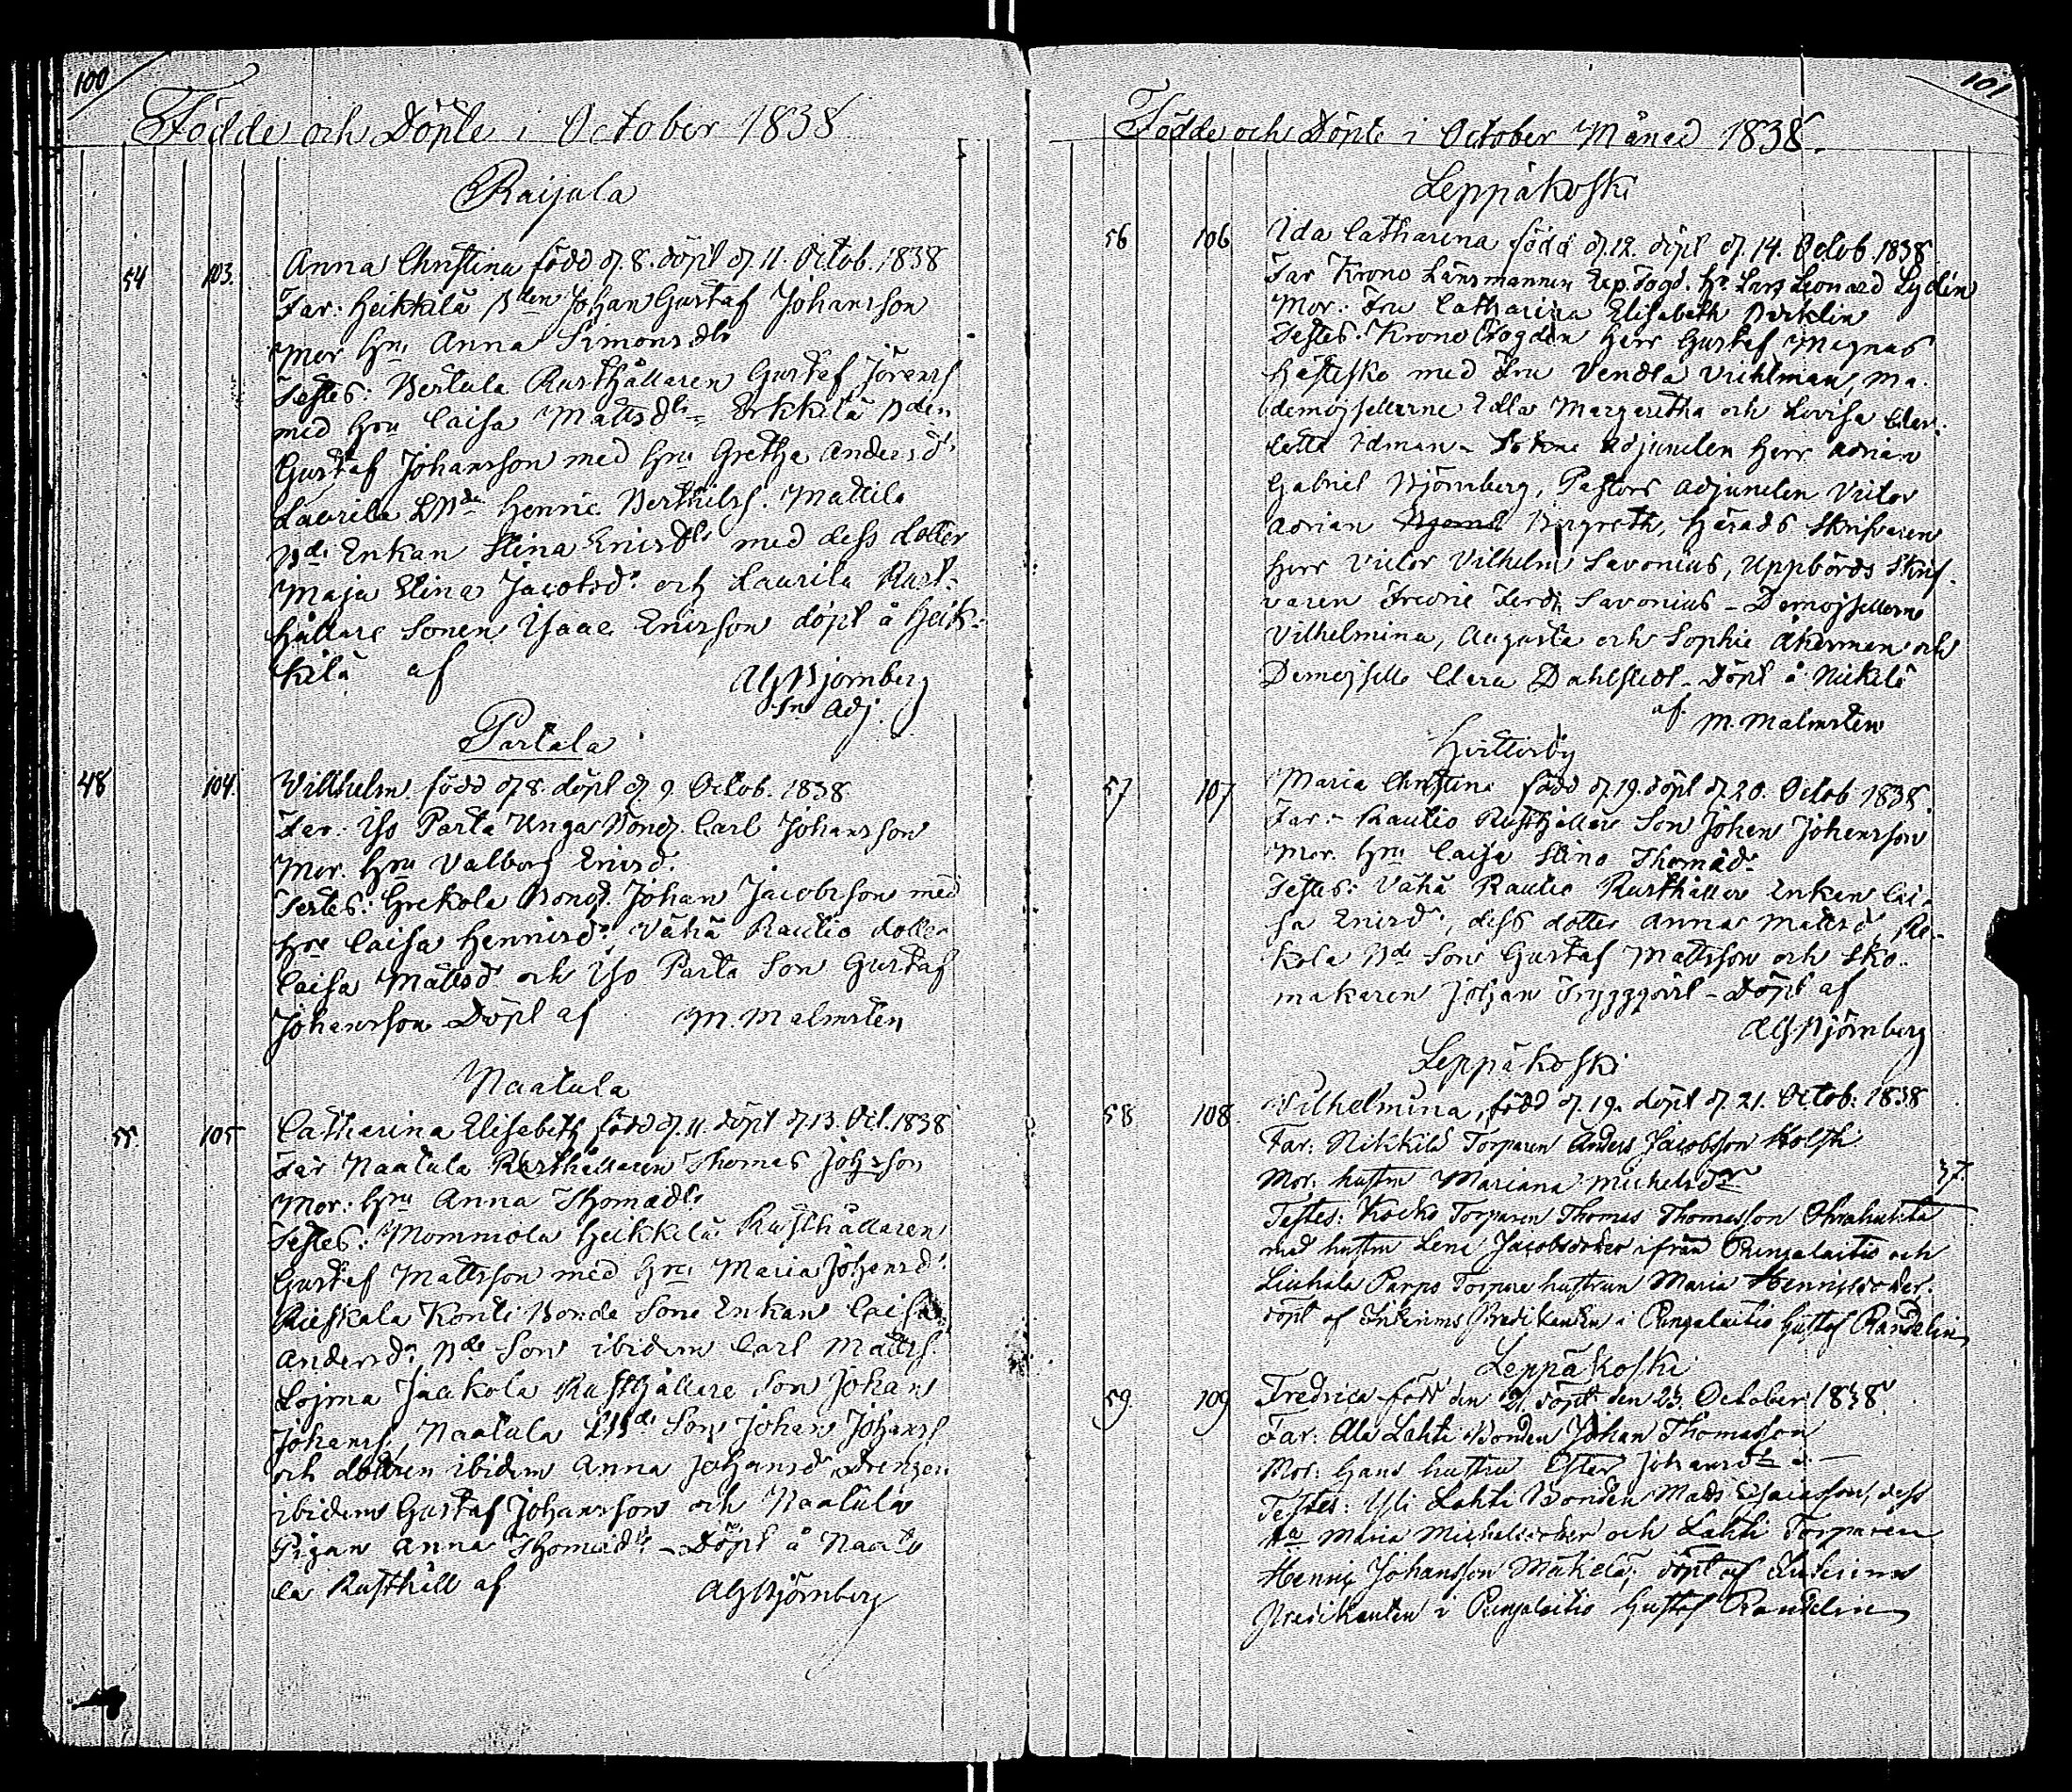 100
Födde och Döpte i October 1838
Raijala
54 103. Anna Christina född d. 8. döpt d. 11. Octob. 1838
Far: Heikkilä Bden Johan Gustaf Johansson
Mor Hru Anna Simonsdr
Testes: Bertula Rusthållaren Gustaf Jöranss
med Hru Caisa Mattsdr Erkkilä Bden
Gustaf Johansson med Hru Gretha Andersdr
Laurila Henric Berthilss. Mattila
Bde Enkan Stina Ericsdr med dess dotter
Maja Stina Jacobsdr och Laurila Rust-
hållare Sonen Isaac Ericsson döpt å Heik-
kilä af AGBjörnberg
Sn Adj.
Partala
48 104. Villhelm född d 8. döpt d. 9 Octob. 1838
Far: Iso Parta Unga Bond. Carl Johansson
Mor. Hru Valborg Ericsd.
Testes: Grekola Bond. Johan Jacobsson med
Hru Caisa Henricsdr, Vähä Rautio dotter
Caisa Mattsd och Iso Parta Son Gustaf
Johansson Döpt af M. Malmsten
Naatula
55. 105 Catharina Elisabeth född d. 11. döpt d 13. Oct. 1838
Far Naatula Rusthållaren Thomas Johsson
Mor: Hru Anna Thomasdr
Testes: Mommola Heikkilä Rusthållaren
Gustaf Mattsson med Hru Maria Johansd.
Rieskala Konti Bonde Sone Enkan Caisa
Andersdr Bde Son ibidem Carl Matts.
Lojma Jaakola Rusthållare Son Johan
Johanss, Naatula Son Johan Johanss
och dottren ibidem Anna Johansdr Drengen
ibidem Gustaf Johansson och Naatula
Pigan Anna Thomasdr - Döpt å Naatu
la Rusthåll af AGBjörnberg
101
Födde och Döpte i October Månad 1838.
Leppäkoski
56 106 Ida Catharina född d. 12. döpt d. 14. Octob. 1838
Far Krono Länsmannen Exp. Fogd. Hr Lars Leonard Lydén
Mor: Fru Catharina Elisabeth
Testes: Krono Fogden Herr Gustaf Magnus
Hästesko med Fru Vendla Vichlman, Ma-
demojsellerne Edla Margaretha och Lovisa Char-
lotta Idman - Sockne Adjuncten Herr Adrian
Gabriel Björnberg, Pastors Adjuncten Victor
Adrian Bergroth, Härads Skrifvaren
Herr Victor Vilhelm Savonius, Uppbörds Skrif-
varen Fredric Ferd. Savonius - Demojsellerne
Vilhelmina, Augusta och Sophie Åkerman och
Demojselle Clara Dahlstedt - Döpt å Nickilä
af M. Malmsten
Hvitterby
57 107 Maria Christina född d 19. döpt d. 20. Octob 1838.
Far: - Rautio Rusthållare Son Johan Johansson
Mor. Hru Caisa Stina Thomasdr
Testes: Vähä Rautio Rusthållar Enkan Cai-
sa Ericsdr, dess dotter Anna Mattsd, Re-
kola Bde Son Gustaf Mattsson och Sko-
makaren Johan - Döpt af
AGBjörnberg
Leppäkoski
58 108. Vilhelmina, född d. 19. döpt d. 21. Octob: 1838
Far: Nikkilä Torparen Anders Jacobsson Holsti
Mor: hustru Mariana Michelsdr 37.
Testes: Kocko Torparen Thomas Thomasson
med hustru Lena Jacobsdoter ifrån Pungalaitio och
Liuhala Parpo Torpare hustrun Maria Henricsdoter.
döpt af Interims Predikanten i Pungalaitio Gustaf Randelin
Leppäkoski
59. 109 Fredrica född den 21. döpt den 23. October 1838.
Far: Ala Lahti Bonden Johan Thomasson
Mor: Hans hustru Ester Johansdr -
Testes: Yli Lahti Bonden Mats Isacsson, dess
Maria Michelsdoter och Lahti Torparen
Henric Johansson Mäkelä, döpt af Interims
Predikanten i Pungalaitio Gustaf Randelin